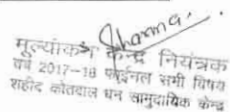 Sharma
मूल्यांकन केन्द्र नियंत्रक
वर्ष 2017-18 फाईनल सभी विषय
शहीद कोतवाल धन सामुदायिक केन्द्र